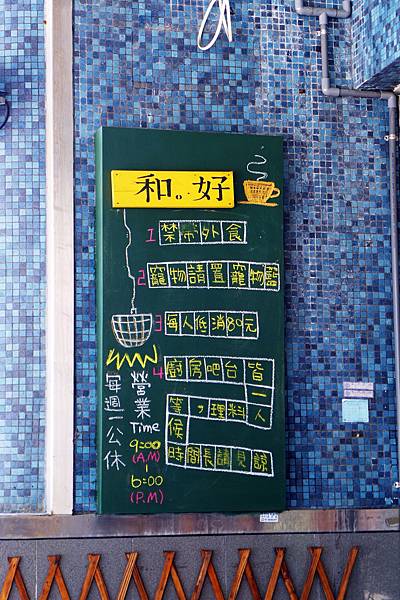 和。好
1 禁帶外食
2 寵物請置寵物籃
3 每人低消80元
4 廚房吧台皆一人
料理，等候
時間長請見諒
營業
Time
9:00
(A.M)
|
6:00
(P.M)
每週一公休